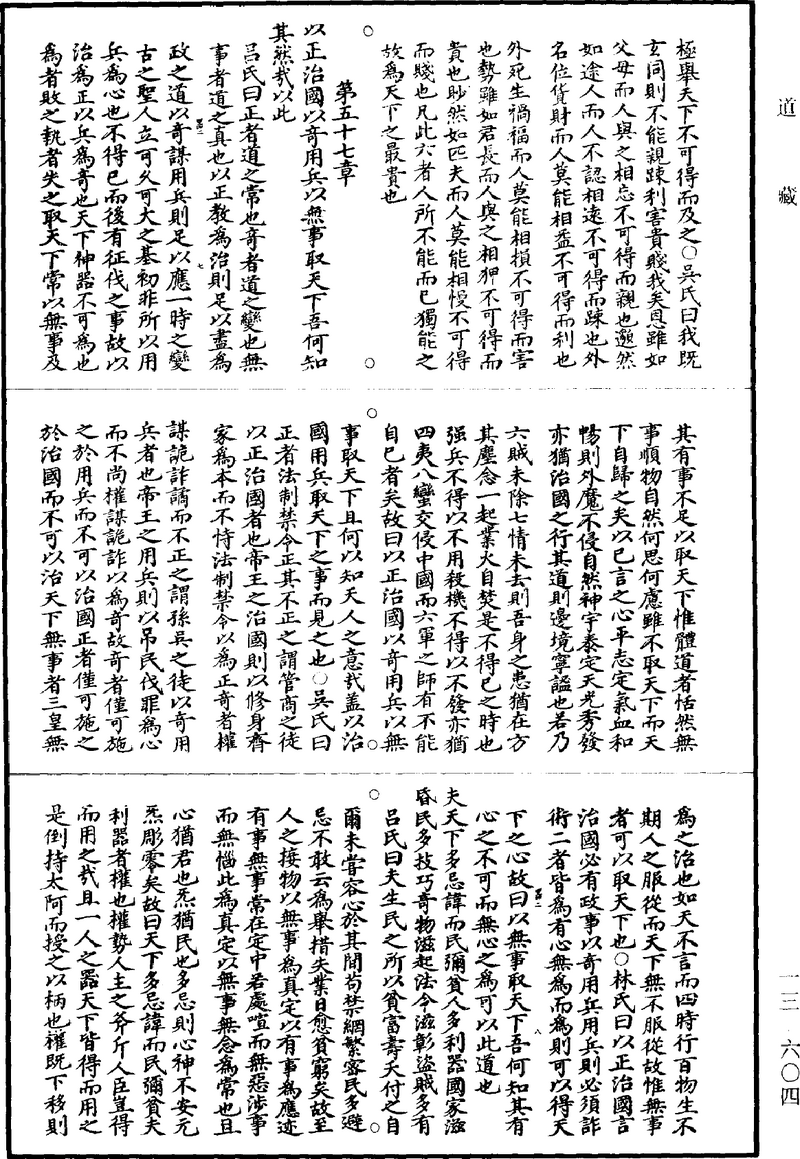 道藏
一三·六〇四
極舉天下不可得而及之○吳氏曰我既
玄同則不能親踈利害貴賤我矣恩雖如
父母而人與之相忘不可得而親也邈然
如途人而人不認相遠不可得而踈也外
名位貨財而人莫能相益不可得而利也
外死生禍福而人莫能相損不可得而害
也勢雖如君長而人與之相狎不可得而
貴也眇然如匹夫而人莫能相慢不可得
而賤也凡此六者人所不能而已獨能之
故爲天下之最貴也
第五十七章
以正治國以奇用兵以無事取天下吾何知
其然㢤以此
呂氏曰正者道之常也奇者道之變也無
事者道之真也以正教爲治則足以盡爲
政之道以奇謀用兵則足以應一時之變
古之聖人立可久可大之基初非所以用
兵爲心也不得已而後有征伐之事故以
治爲正以兵爲奇也天下神器不可爲也
爲者敗之執者失之取天下常以無事及
其有事不足以取天下惟體道者恬然無
事順物自然何思何慮雖不取天下而天
下自歸之矣以已言之心平志定氣血和
暢則外魔不侵自然神宇泰定天光秀發
亦猶治國之行其道則邊境寧謐也若乃
六賊未除七情未去則吾身之患猶在方
其塵念一起業火自焚是不得已之時也
强兵不得以不用殺機不得以不發亦猶
四夷八蠻交侵中國而六軍之師有不能
自已者矣故曰以正治國以奇用兵以無
事取天下且何以知天人之意㢤盖以治
國用兵取天下之事而見之也○吳氏曰
正者法制禁令正其不正之謂管商之徒
以正治國者也帝王之治國則以修身齊
家爲本而不恃法制禁令以爲正奇者權
謀詭詐譎而不正之謂孫吳之徒以奇用
兵者也帝王之用兵則以吊民伐罪爲心
而不尚權謀詭詐以爲奇故奇者僅可施
之於用兵而不可以治國正者僅可施之
於治國而不可以治天下無事者三皇無
爲之治也如天不言而四時行百物生不
期人之服從而天下無不服從故惟無事
者可以取天下也○林氏曰以正治國言
治國必有政事以奇用兵用兵則必須詐
術二者皆爲有心無爲而爲則可以得天
下之心故曰以無事取天下吾何知其有
心之不可而無心之爲可以此道也
夫天下多忌諱而民彌貧人多利器國家滋
昏民多技巧奇物滋起法令滋彰盗賊多有
呂氏曰夫生民之所以貧富壽夭付之自
爾未嘗容心於其間苟禁網繁密民多避
忌不敢云爲舉措失業日愈貧窮矣故至
人之接物以無事爲真定以有事爲應迹
有事無事常在定中若處喧而無惡涉事
而無惱此爲真定以無事無念爲常也且
心猶君也炁猶民也多忌則心神不安元
炁彫零矣故曰天下多忌諱而民彌貧夫
利器者權也權勢人主之斧斤人臣豈得
而用之㢤且一人之器天下皆得而用之
是倒持太阿而授之以柄也權既下移則